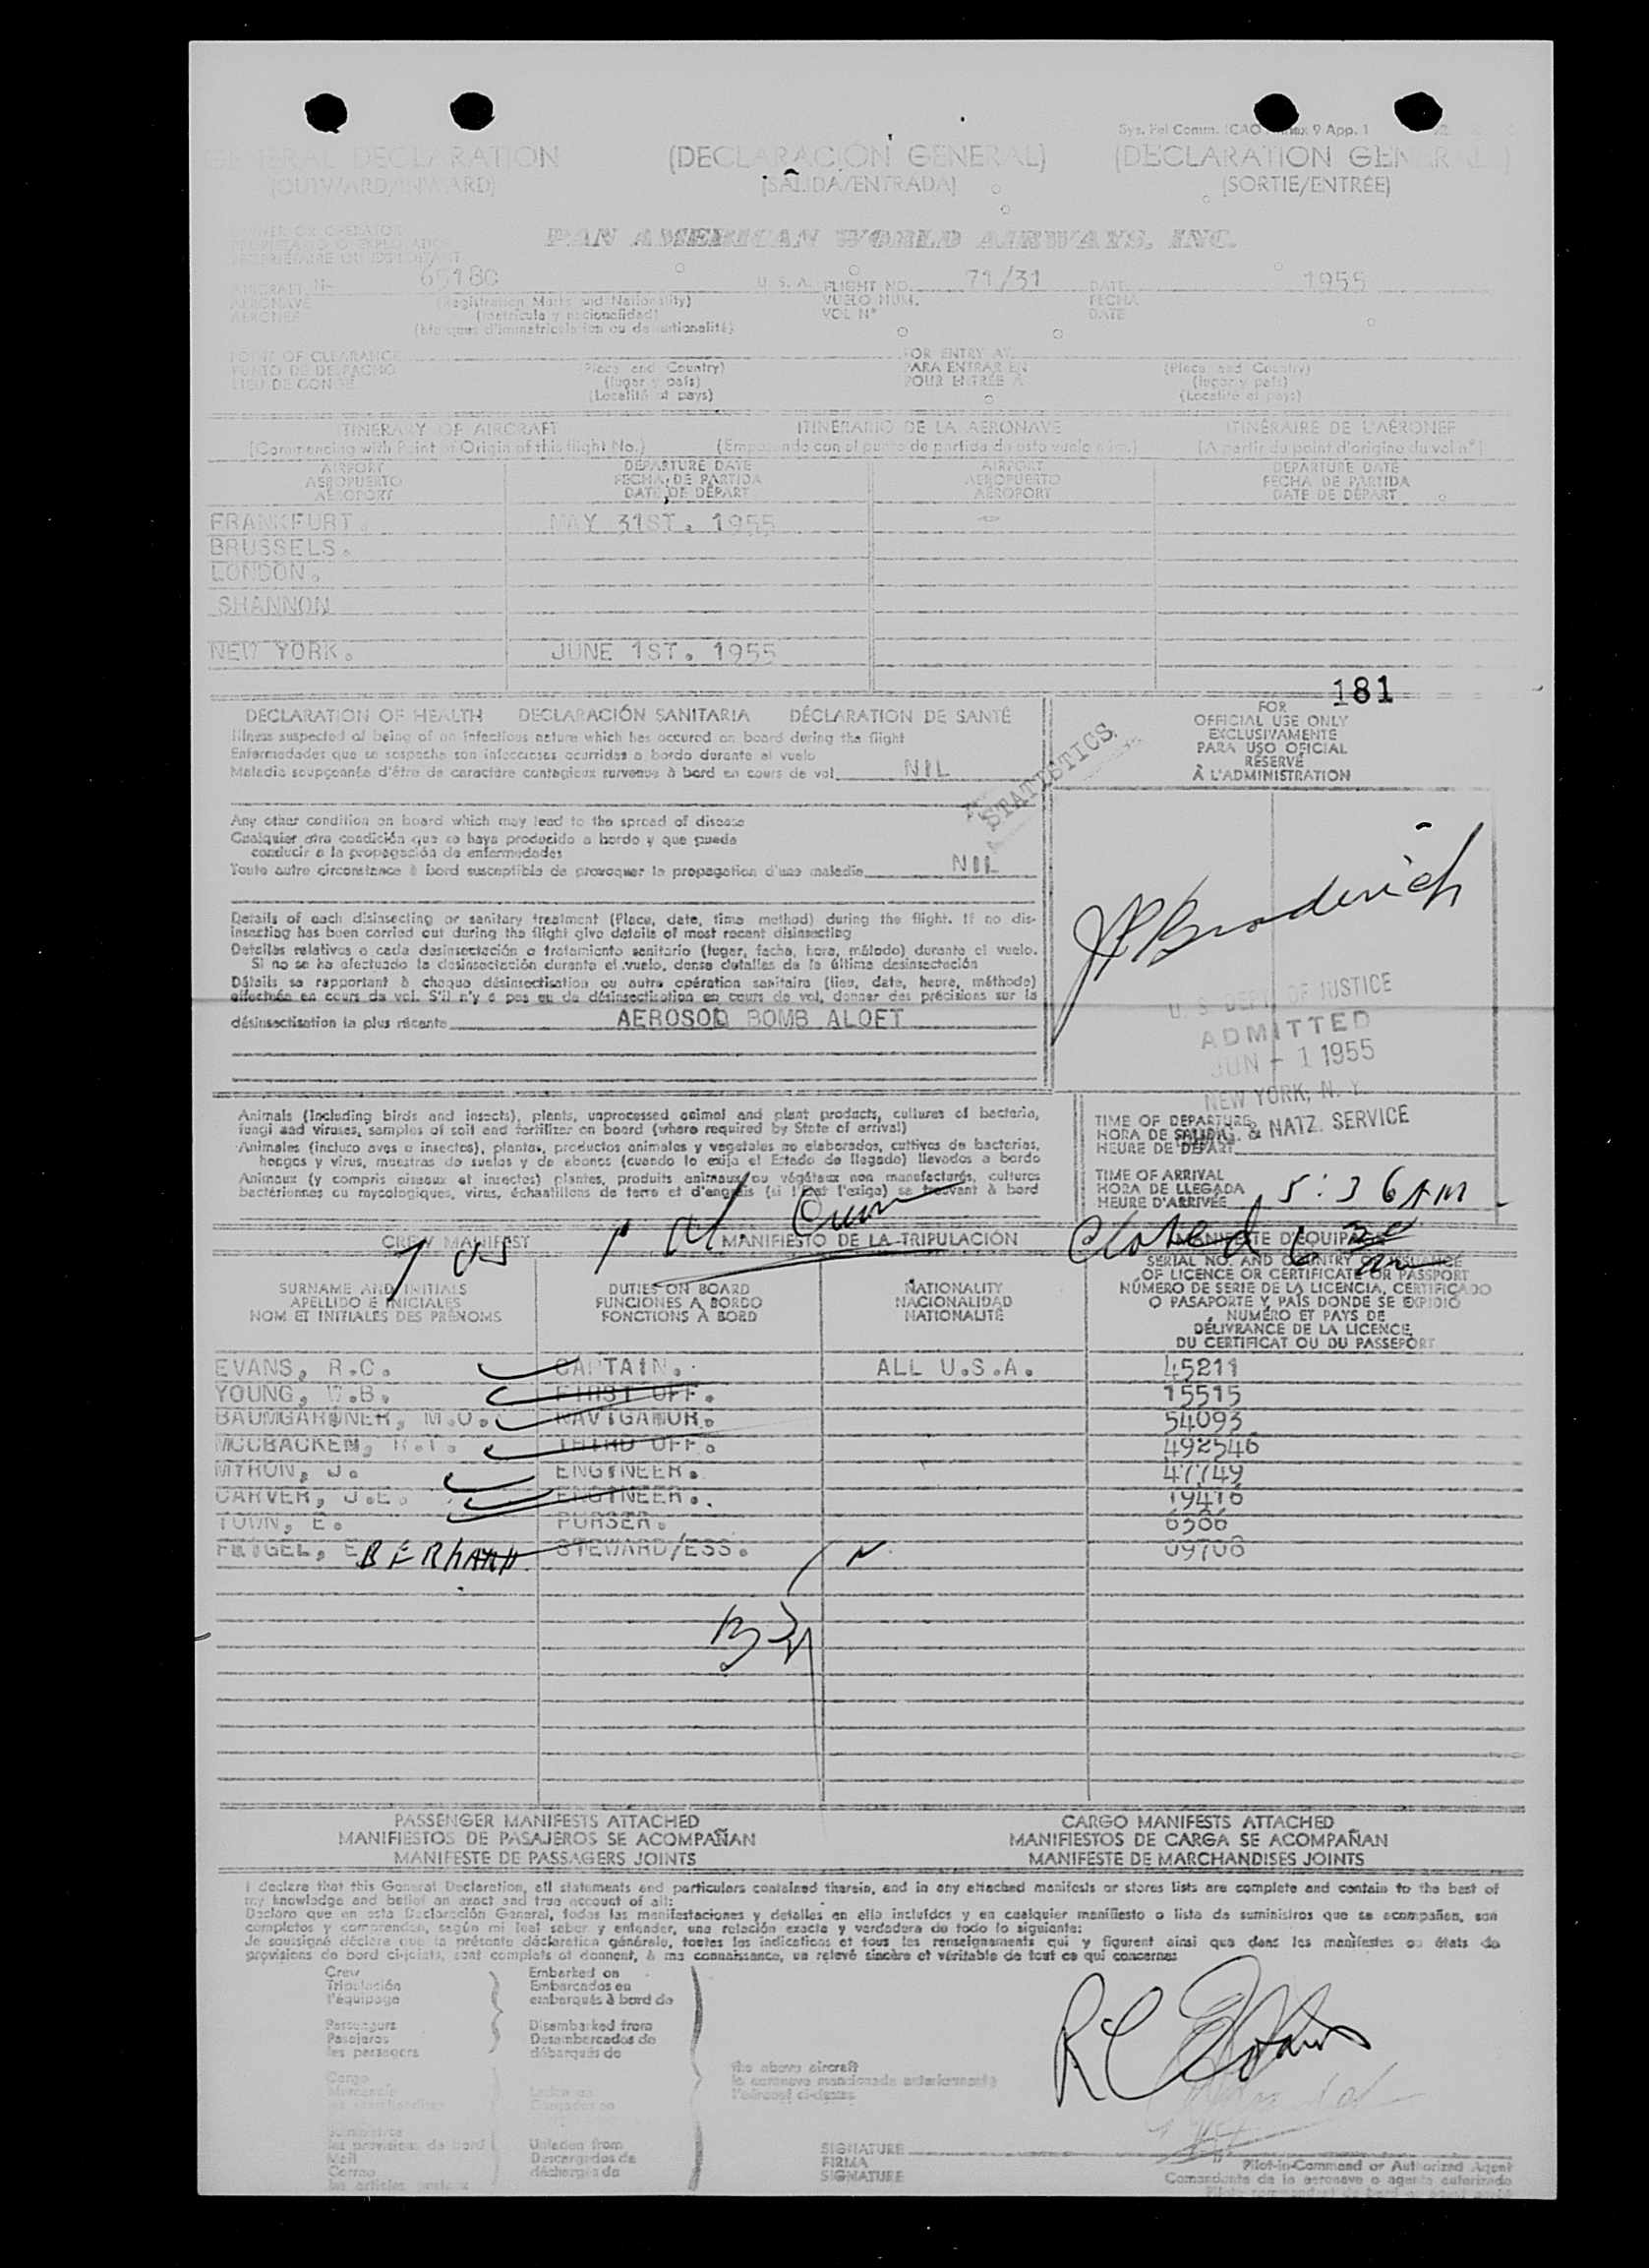 Sys. Fel Comm. ICAO Annex 9 App. 1
GENERAL DECLARATION (DECLARACIÓN GENERAL) (DECLARATION GENERALE)
(OUTWARD/INWARD) (SALIDA/ENTRADA) (SORTIE/ENTRÉE)
OWNER OR OPERATOR
PAN AMERICAN WORLD AIRWAYS, INC.
AIRCRAFT N- U. S. A. FLIGHT NO. 71/31 DATE 1955
AERONAVE (Registration Marks and Nationality) VUELO NUM. FECHA
AERONEF (matrícula y nacionalidad) VOL N° DATE
(Marques d'immatriculation ou de nationalité)
POINT OF CLEARANCE FOR ENTRY AT
PUNTO DE DESPACHO (Place and Country) PARA ENTRAR EN (Place and Country)
LIEU DE CONGÉ (lugar y país) POUR ENTRÉE À (lugar y país)
(Localité et pays) (Localité et pays)
ITINERARY OF AIRCRAFT ITINERARIO DE LA AERONAVE ITINÉRAIRE DE L'AÉRONEF
(Commencing with Point of Origin of this flight No.) (Empezando con el punto de partida de este vuelo núm.) (A partir du point d'origine du vol n°)
AIRPORT DEPARTURE DATE AIRPORT DEPARTURE DATE
AEROPUERTO FECHA DE PARTIDA AEROPUERTO FECHA DE PARTIDA
AÉROPORT DATE DE DÉPART AÉROPORT DATE DE DÉPART
FRANKFURT. MAY 31ST. 1955
BRUSSELS.
LONDON.
SHANNON
NEW YORK. JUNE 1ST. 1955
181
DECLARATION OF HEALTH DECLARACIÓN SANITARIA DÉCLARATION DE SANTÉ
Illness suspected of being of an infectious nature which has occured on board during the flight
Enfermedades que se sospecha son infecciosas ocurridas a bordo durante el vuelo
Maladie soupçonnée d'être de caractère contagieux survenue à bord en cours de vol NIL
STATISTICS
FOR
OFFICIAL USE ONLY
EXCLUSIVAMENTE
PARA USO OFICIAL
RÉSERVÉ
À L'ADMINISTRATION
Any other condition on board which may lead to the spread of disease
Cualquier otra condición que se haya producido a bordo y que pueda
conducir a la propagación de enfermedades
Toute autre circonstance à bord susceptible de provoquer la propagation d'une maladie NIL
Details of each disinsecting or sanitary treatment (Place, date, time method) during the flight. If no dis-
insecting has been carried out during the flight give details of most recent disinsecting
Detalles relativos a cada desinsectación o tratamiento sanitario (lugar, fecha, hora, método) durante el vuelo.
Si no se ha efectuado la desinsectación durante el vuelo, dense detalles de la última desinsectación
Détails se rapportant à chaque désinsectisation ou autre opération sanitaire (lieu, date, heure, méthode)
effectuée en cours de vol. S'il n'y a pas eu de désinsectisation en cours de vol, donner des précisions sur la
désinsectisation la plus récente AEROSOL BOMB ALOFT
JP Broderick
U. S. DEPT. OF JUSTICE
ADMITTED
JUN - 1 1955
NEW YORK, N. Y.
& NATZ. SERVICE
Animals (Including birds and insects), plants, unprocessed animal and plant products, cultures of bacteria,
fungi and viruses, samples of soil and fertilizer on board (where required by State of arrival)
Animales (incluso aves e insectos), plantas, productos animales y vegetales no elaborados, cultivos de bacterias,
hongos y virus, muestras de suelos y de abonos (cuando lo exija el Estado de llegada) llevados a bordo
Animaux (y compris oiseaux et insectes) plantes, produits animaux ou végétaux non manufacturés, cultures
bactériennes ou mycologiques, virus, échantillons de terre et d'engrais (si l'État l'exige) se trouvant à bord
TIME OF DEPARTURE
HORA DE SALIDA
HEURE DE DÉPART
TIME OF ARRIVAL
HORA DE LLEGADA 5:36 AM
HEURE D'ARRIVÉE
Closed 6 30 am
CREW MANIFEST MANIFIESTO DE LA TRIPULACIÓN MANIFESTE D'ÉQUIPAGE
7 US
SURNAME AND INITIALS DUTIES ON BOARD NATIONALITY SERIAL NO. AND COUNTRY OF ISSUANCE
APELLIDO E INICIALES FUNCIONES A BORDO NACIONALIDAD OF LICENCE OR CERTIFICATE OR PASSPORT
NOM ET INITIALES DES PRÉNOMS FONCTIONS À BORD NATIONALITÉ NÚMERO DE SERIE DE LA LICENCIA, CERTIFICADO
O PASAPORTE Y PAÍS DONDE SE EXPIDIÓ
NUMÉRO ET PAYS DE
DÉLIVRANCE DE LA LICENCE
DU CERTIFICAT OU DU PASSEPORT
EVANS, R.C. CAPTAIN. ALL U.S.A. 45211
YOUNG, W.B. FIRST OFF. 15515
BAUMGARDNER, M.O. NAVIGATOR. 54093
THIRD OFF. 492546
MYRON, J. ENGINEER. 47749
CARVER, J.E. ENGINEER. 19416
TOWN, E. PURSER. 6306
FEIGEL, EBERHARD STEWARD/ESS. 09708
PASSENGER MANIFESTS ATTACHED CARGO MANIFESTS ATTACHED
MANIFIESTOS DE PASAJEROS SE ACOMPAÑAN MANIFIESTOS DE CARGA SE ACOMPAÑAN
MANIFESTE DE PASSAGERS JOINTS MANIFESTE DE MARCHANDISES JOINTS
I declare that this General Declaration, all statements and particulars contained therein, and in any attached manifests or stores lists are complete and contain to the best of
my knowledge and belief an exact and true account of all:
Declaro que en esta Declaración General, todas las manifestaciones y detalles en ella incluídos y en cualquier manifiesto o lista de suministros que se acompañen, son
completos y comprenden, según mi leal saber y entender, una relación exacta y verdadera de todo lo siguiente:
Je soussigné déclare que la présente déclaration générale, toutes les indications et tous les renseignements qui y figurent ainsi que dans les manifestes ou états de
provisions de bord ci-joints, sont complets et donnent, à ma connaissance, un relevé sincère et véritable de tout ce qui concerne:
Crew Embarked on
Tripulación Embarcados en
l'équipage embarqués à bord de
Passengers Disembarked from
Pasajeros Desembarcados de
les passagers débarqués de
Cargo the above aircraft
la aeronave mencionada anteriormente
l'aéronef ci-dessus
les provisions de bord Unladen from
Mail Descargados de
Correo déchargés de
les articles postaux
RC Evans
SIGNATURE
FIRMA Pilot-in-Command or Authorized Agent
SIGNATURE Comandante de la aeronave o agente autorizado